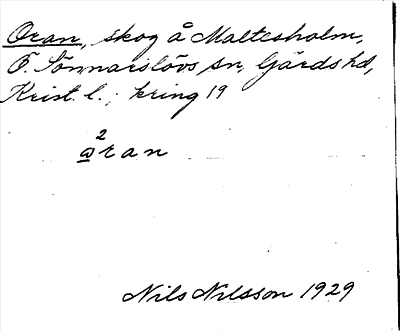 Oran, skog å Maltesholm,
Ö. Sönnarslövs sn, Gärds hd,
Krist. l.; kring 19
2
ωran
Nils Nilsson 1929